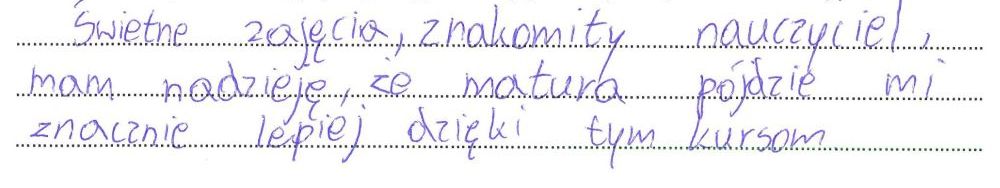 Świetne zajęcia, znakomity nauczyciel,
mam nadzieję, że matura pójdzie mi
znacznie lepiej dzięki tym kursom.